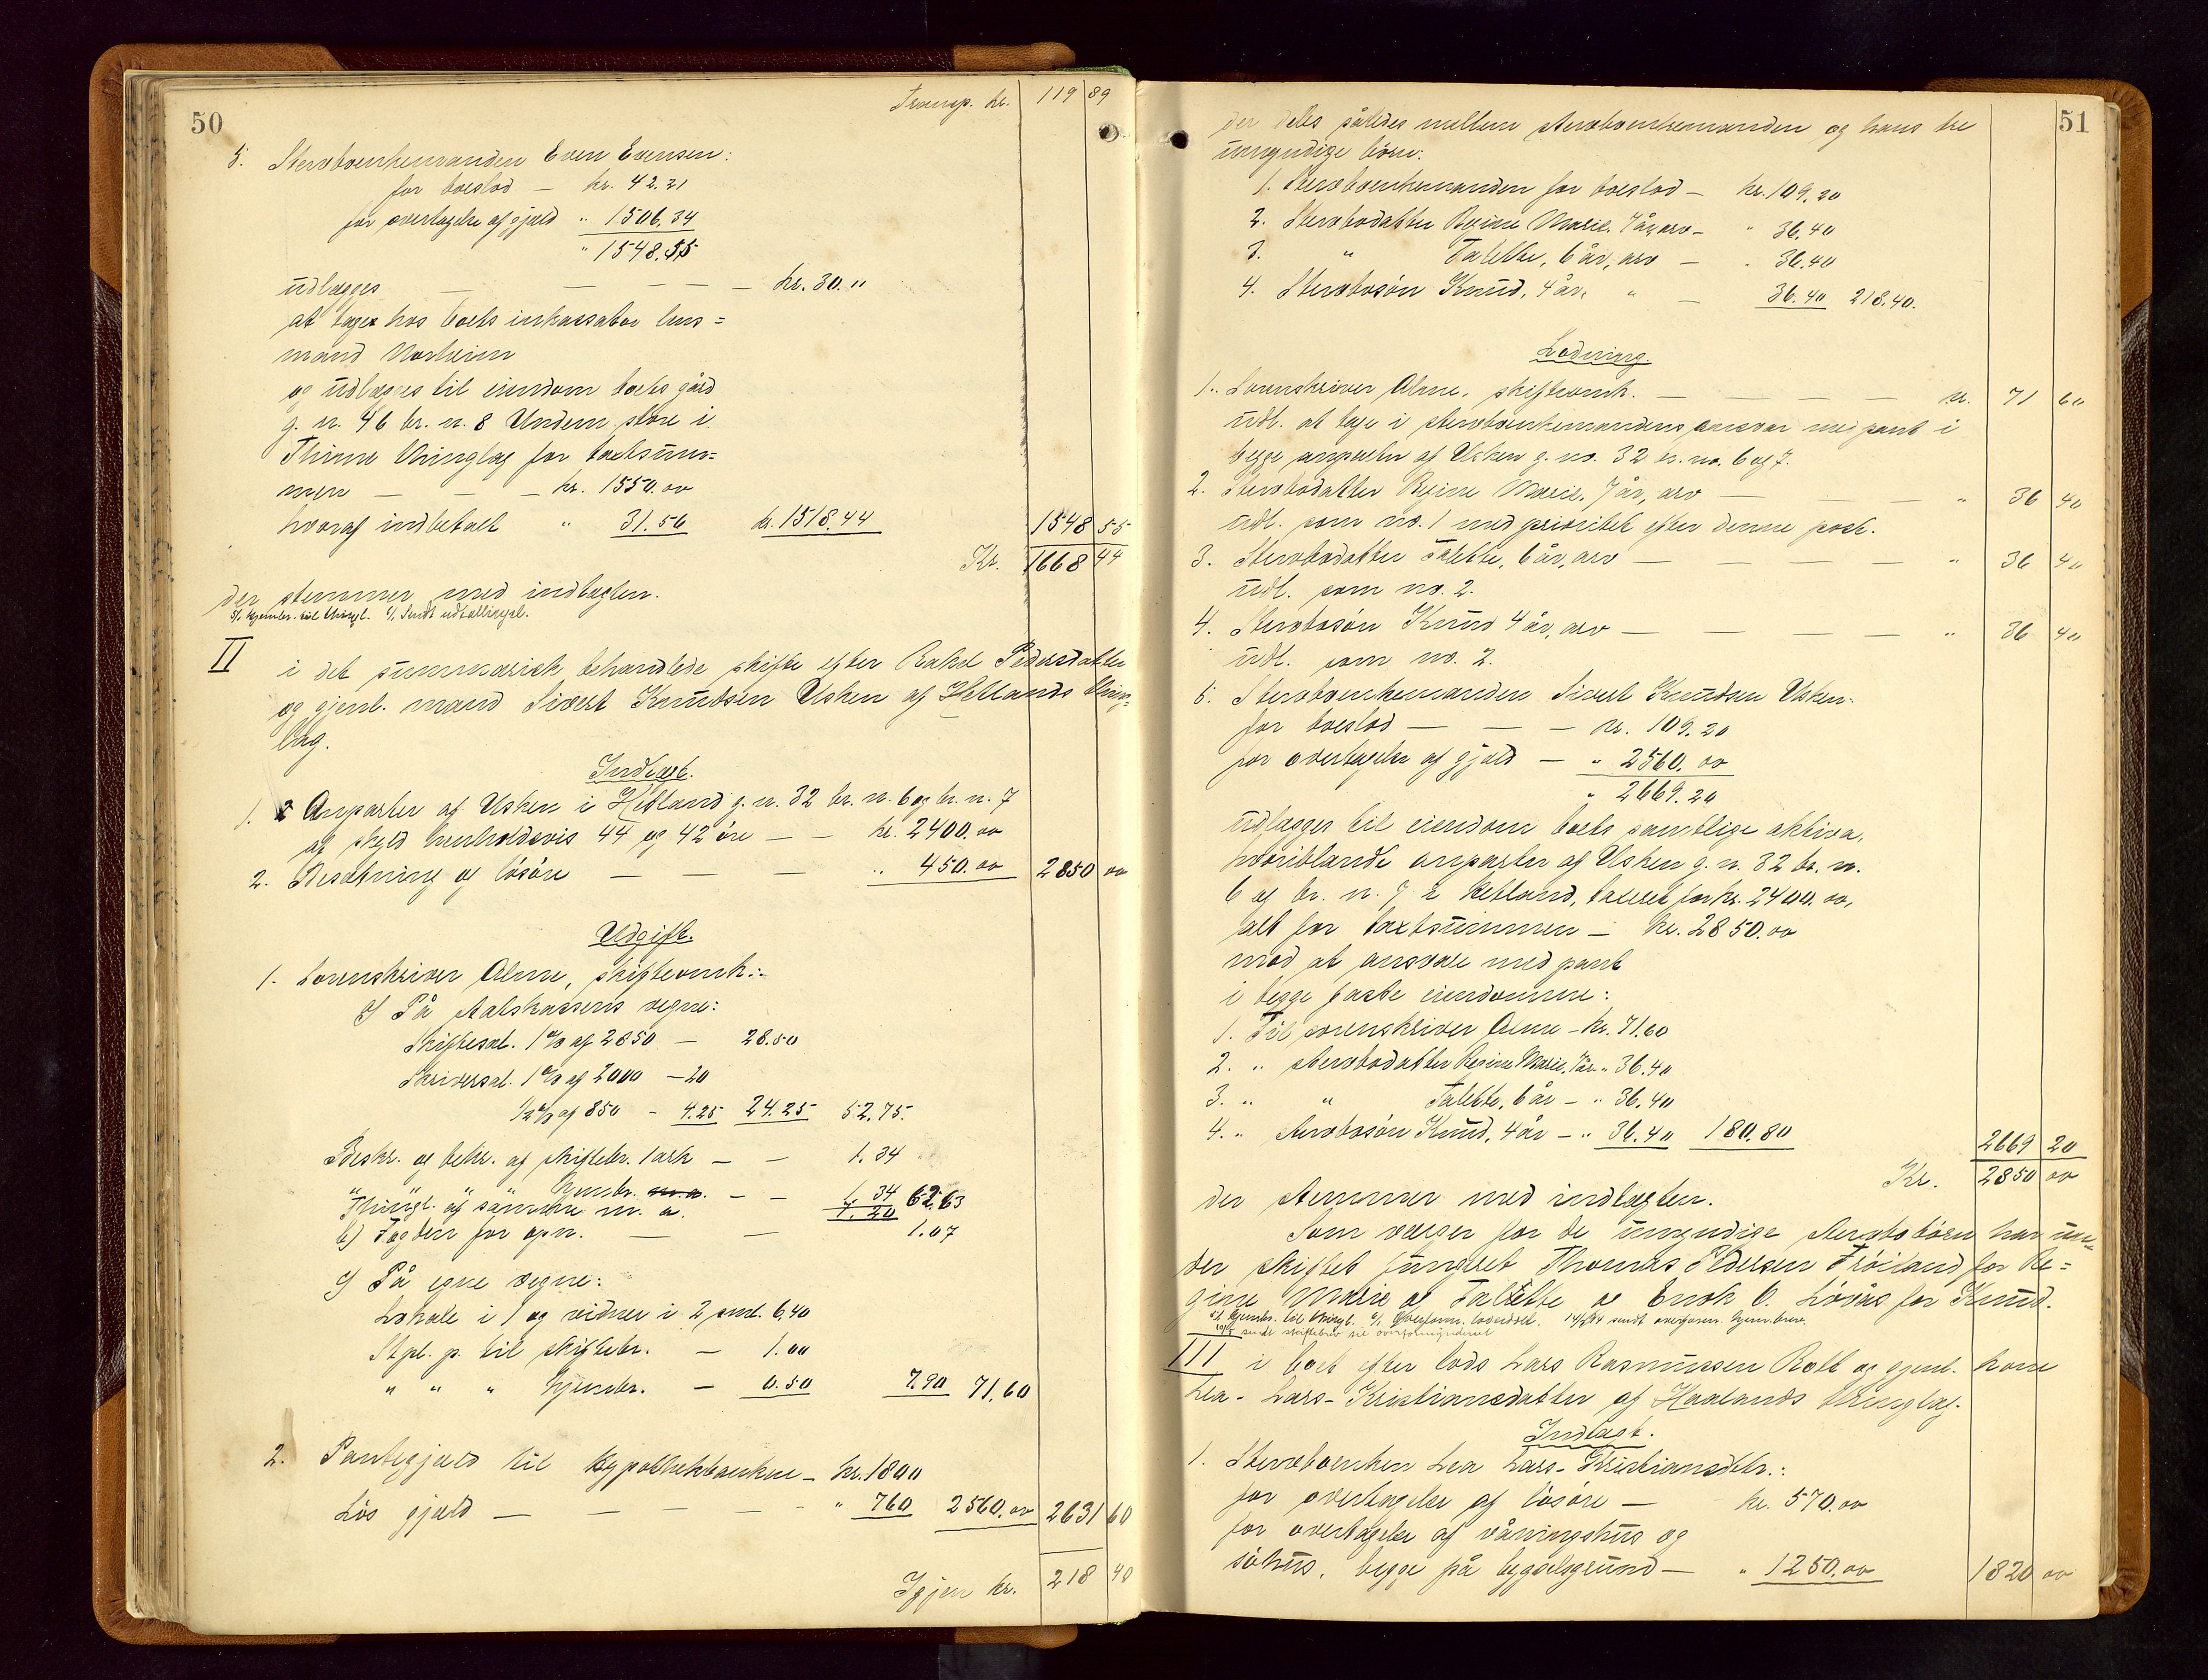 50
Transp. kr. 119 89
5. Stervboenkemanden Even Evensen:
for boeslod — kr. 42.21
for overtagelse af gjæld " 1506.34
" 1548.55
udlægges — — — — kr. 30."
at tages hos boets inkassator lens=
mand Norheim
og udlægges til eiendom boets gård
g. n. 46 br. n. 8 Undem store i
Thime thinglag for taxtsum=
men — — — kr. 1550.00
hvoraf indbetalt " 31.56 kr. 1518.44 1548 55
Kr. 1668 44
der stemmer med indtægten.
II i det summarisk behandlede skifte efter Rakel Pedersdatter
og gjenl. mand Sivert Knudsen Usken af Hetlands thing=
lag.
Indtægt.
1. 2 Anparter af Usken i Hetland g. n. 32 br. n. 6 og br. n. 7
af skyld henholdsvis 44 og 42 øre — — kr. 2400.00
2. Besætning og løsøre — — — " 450.00 2850 00
Udgift.
1. Sorenskriver Olme, skifteomk.:
a) På statskassens vegne:
Skiftesal. 1% af 2850 — 28.50
Skriversal. 1% af 2000 — 20
1/2% af 850 - 4.25 24.25 52.75.
Beskr. og bekr. af skiftebr. 1 ark — — 1.34
" " " " hjembr. — — 1.34 62.63
Thingl. af samme m. a. 7.20
b) Fogden for opn. — — 1.07
c) På egne vegne:
Lokale i 1 og vidner i 2 sml. 6.40
Stpl. p. til skiftebr. — 1.00
" " " hjembr. — 0.50 7.90 71.60
2. Pantegjæld til hypothekbanken — kr. 1800
Løs gjæld — — — — " 760 2560.00 2631 60
Igjen kr. 218 40
51
der deles således mellem stervboenkemanden og hans tre
umyndige børn:
1. Stervboenkemanden for boeslod — kr. 109.20
2. Stervbodatter Regine Marie, 7 år, arv — " 36.40
3. " Talette, 6 år, arv — " 36.40
4. Stervbosøn Knud, 4 år, " — 36.40 218.40.
Lodning.
1. Sorenskriver Olme, skifteomk. — — — — kr. 71 60
udl. at tage i stervboenkemandens ansvar med pant i
begge anparter af Usken g. no. 32 br. no. 6 og 7.
2. Stervbodatter Regine Marie, 7 år, arv — — — " 36 40
udl. som no. 1 med prioritet efter denne post.
3. Stervbodatter Talette, 6 år, arv — — — — " 36 40
udl. som no. 2.
4. Stervbosøn Knud 4 år, arv — — — — " 36 40
udl. som no. 2.
5. Stervboenkemanden Sivert Knudsen Usken:
for boeslod — — — kr. 109.20
for overtagelse af gjæld — " 2560.00
" 2669.20
udlægges til eiendom boets samtlige aktiva,
hvoriblandt anparter af Usken g. n. 32 br. n.
6 og br. n. 7 i Hetland, taxeret for kr. 2400.00,
alt for taxtsummen — kr. 2850.00
mod at ansvare med pant
i begge faste eiendomme:
1. Til sorenskriver Olme - kr. 71.60
2. " stervbodatter Regine Marie, 7 år " 36.40
3. " " Talette, 6 år — " 36.40
4. " stervbosøn Knud, 4 år — " 36.40 180.80 2669 20
Kr. 2850 00
der stemmer med indtægten.
Som værger for de umyndige stervbobørn har un=
der skiftet fungeret Thomas Pedersen Frøiland for Re=
gine Marie og Talette og Enok O. Løvås for Knud.
III i boet efter lods Lars Rasmussen Rott og gjenl. kone
Lea- Lars- Kristiansdatter af Haalands thinglag.
Indtægt.
1. Stervboenken Lea Lars- Kristiansdtr.:
for overtagelse af løsøre — kr. 570.00
for overtagelse af våningshus og
søhus, begge på bygselsgrund — " 1250.00 1820 00